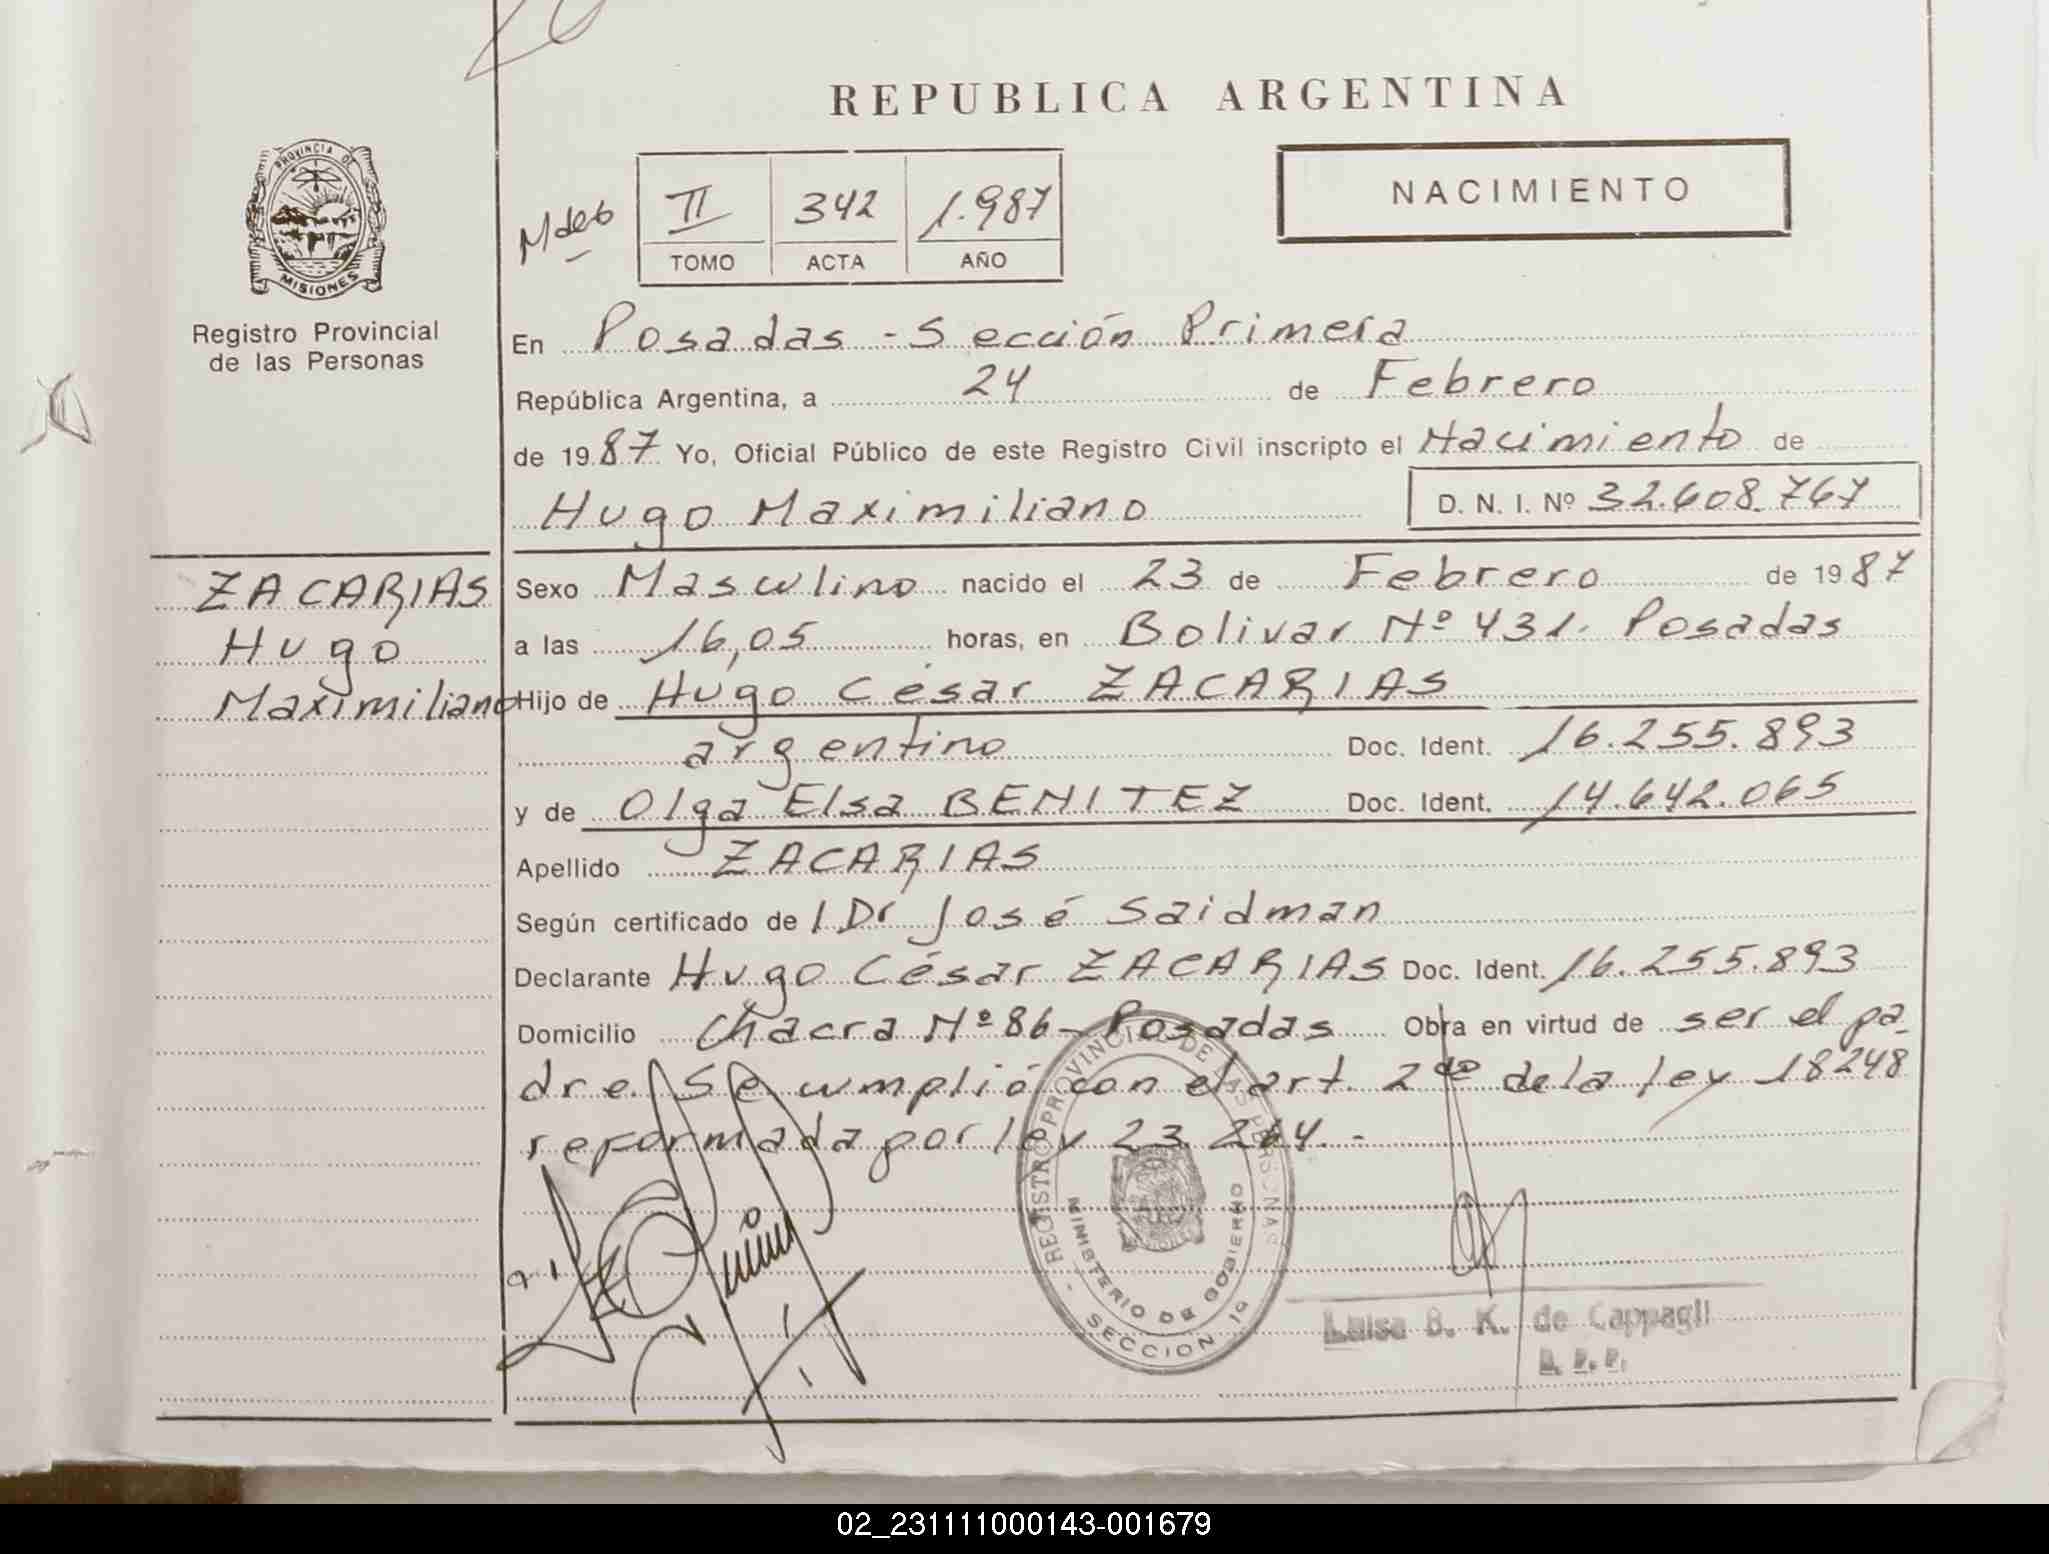 REPUBLICA ARGENTINA
PROVINCIA DE
MISIONES
Registro Provincial
de las Personas
II 342 1.987
TOMO ACTA AÑO
NACIMIENTO
En Posadas - Sección Primera
República Argentina, a 24 de Febrero
de 1987 Yo, Oficial Público de este Registro Civil inscripto el Nacimiento de
Hugo Maximiliano D. N. I. Nº 32.608.767
ZACARIAS
Hugo
Maximiliano
Sexo Masculino nacido el 23 de Febrero de 1987
a las 16,05 horas, en Bolivar Nº 431. Posadas
Hijo de Hugo César ZACARIAS
argentino Doc. Ident. 16.255.893
y de Olga Elsa BENITEZ Doc. Ident. 14.642.065
Apellido ZACARIAS
Según certificado de l Dr José Saidman
Declarante Hugo César ZACARIAS Doc. Ident. 16.255.893
Domicilio Chacra Nº 86 - Posadas Obra en virtud de ser el pa-
dre. Se cumplió con el art. 2do de la ley 18248
reformada por ley 23.264.-
- REGISTRO PROVINCIAL DE LAS PERSONAS -
MINISTERIO DE GOBIERNO
SECCION 1a
Luisa B. K. de Cappagli
02_231111000143-001679